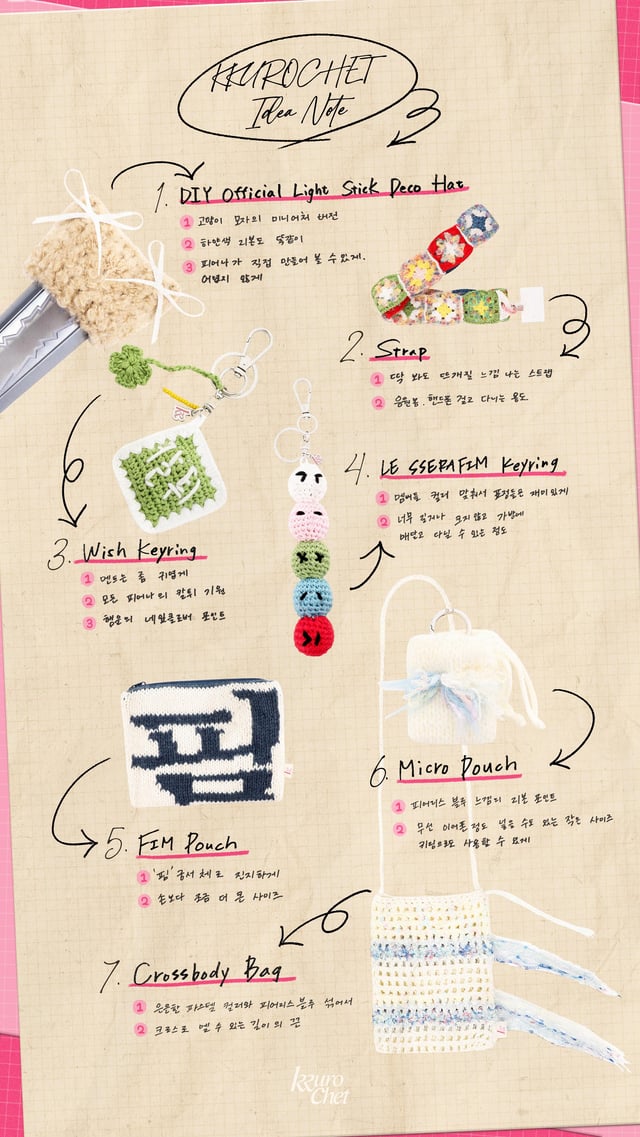 KKUROCHET
Idea Note
1. DIY Official Light Stick Deco Hat
1 고양이 모자의 미니어처 버전
2 하얀색 리본도 똑같이
3 피어나가 직접 만들어 볼 수 있게.
어렵지 않게
2. Strap
1 딱 봐도 뜨개질 느낌 나는 스트랩
2 응원봉, 핸드폰 걸고 다니는 용도
4. LE SSERAFIM Keyring
1 멤버들 컬러 맞춰서 표정들은 재미있게
2 너무 길거나 크지 않고 가방에
매달고 다닐 수 있는 정도
3. Wish Keyring
1 멘트는 좀 귀엽게
2 모든 피어나의 칼퇴 기원
3 행운의 네잎클로버 포인트
칼퇴
핌
6. Micro Pouch
1 피어리스 블루 느낌의 리본 포인트
2 무선 이어폰 정도 넣을 수도 있는 작은 사이즈
키링으로도 사용할 수 있게
5. FIM Pouch
1 '핌' 궁서체로 진지하게
2 손보다 조금 더 큰 사이즈
7. Crossbody Bag
1 은은한 파스텔 컬러와 피어리스 블루 섞어서
2 크로스로 멜 수 있는 길이의 끈
kkuro
chet